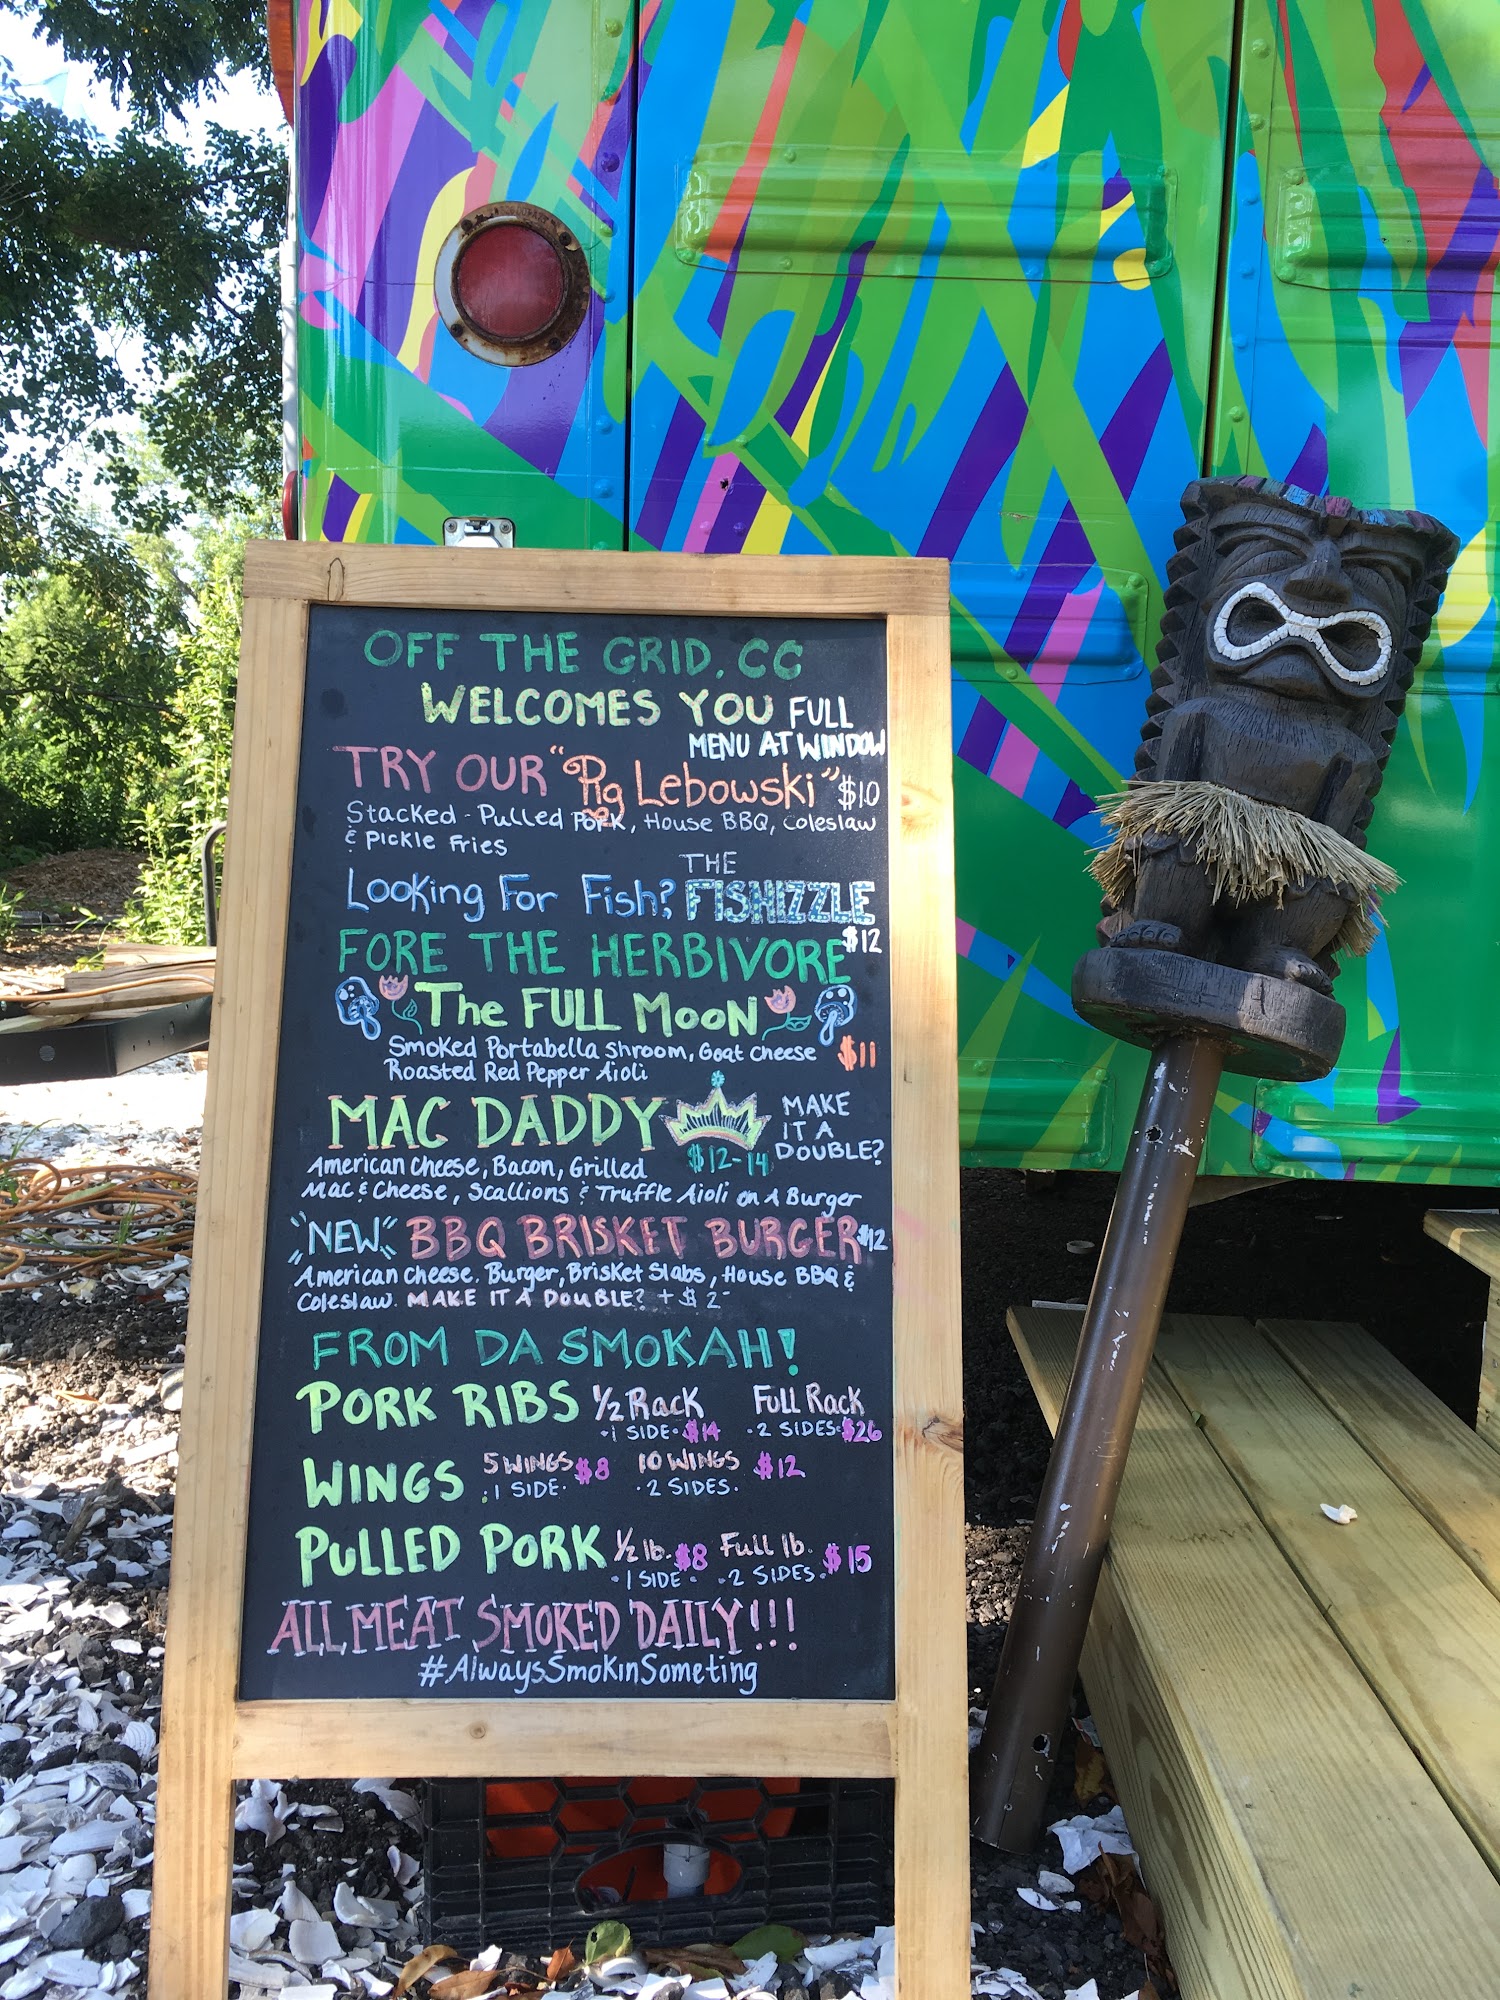 OFF THE GRID.CC
WELCOMES YOU FULL
MENU AT WINDOW
TRY OUR "Pig Lebowski" $10
Stacked - Pulled Pork, House BBQ, Coleslaw
& Pickle Fries
Looking For Fish? THE FISHIZZLE
$12
FORE THE HERBIVORE
The FULL MOON
Smoked Portabella Shroom, Goat Cheese $11
Roasted Red Pepper Aioli
MAC DADDY MAKE IT A DOUBLE?
$12-14
American Cheese, Bacon, Grilled
Mac & Cheese, Scallions & Truffle Aioli on A Burger
"NEW" BBQ BRISKET BURGER $12
American Cheese. Burger, Brisket Slabs, House BBQ &
Coleslaw. MAKE IT A DOUBLE? + $2-
FROM DA SMOKAH!
PORK RIBS 1/2 Rack Full Rack
·1 SIDE· $14 ·2 SIDES· $26
WINGS 5 WINGS $8 10 WINGS $12
·1 SIDE· ·2 SIDES.
PULLED PORK 1/2 lb. $8 Full lb. $15
·1 SIDE· ·2 SIDES.
ALL MEAT SMOKED DAILY!!!
#AlwaysSmokinSometing